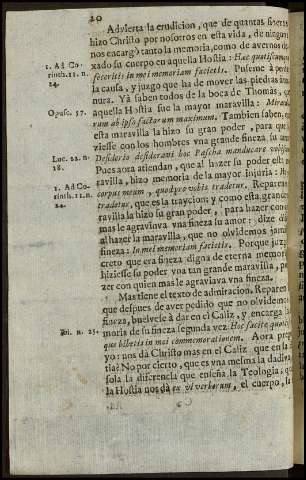 20
Advierta la erudicion, que de quantas finezas
hizo Christo por nosotros en esta vida, de ninguna
nos encargò tanto la memoria, como de avernos de-
1. Ad Co-
rinth. 11. n.
24.
xado su cuerpo en aquella Hostia: Hæc quotiescumq
feceritis in mei memoriam facietis. Puseme à pensar
la causa, y juzgo que ha de mover las piedras à
nura. Yà saben todos de la boca de Thomas, que
Opusc. 57.
aquella Hostia fue la mayor maravilla: Miracu-
rum ab ipso factorum maximum. Tambien saben, que
esta maravilla la hizo su gran poder, para que
ziesse con los hombres vna grande fineza su amor
Luc. 22. n.
18.
Desiderio desideravi hoc Pascha manducare vobiscum
Pues aora atiendan, que al hazer su poder esta ma-
1. Ad Co-
rinth. 11. n.
24.
ravilla, hizo memoria de la mayor injuria: Hoc
corpus meum, quod pro vobis tradetur. Reparen
tradetur, que es la traycion; y como esta grande
ravilla la hizo su gran poder, para hazer con
mas le agraviava vna fineza su amor: dize
al hazer la maravilla, que no olvidemos jamàs
fineza: In mei memoriam facietis. Porque juzgò
creto que era fineza digna de eterna memoria
hiziesse su poder vna tan grande maravilla, pa
zer con quien mas le agraviava vna fineza.
Mas tiene el texto de admiracion. Reparen
que despues de aver pedido que no olvidemos
fineza, buelvese à dar en el Caliz, y encarga la
Ibi. n. 25.
moria de su fineza segunda vez: Hoc facite quoties
que bibetis in mei commemorationem. Aora pre
yo: nos dà Christo mas en el Caliz que en la
tia? No por cierto, que es vna mesma la dadiva
sola la diferencia que enseña la Teologia, que
la Hostia nos dà ex vi verborum, el cuerpo, la